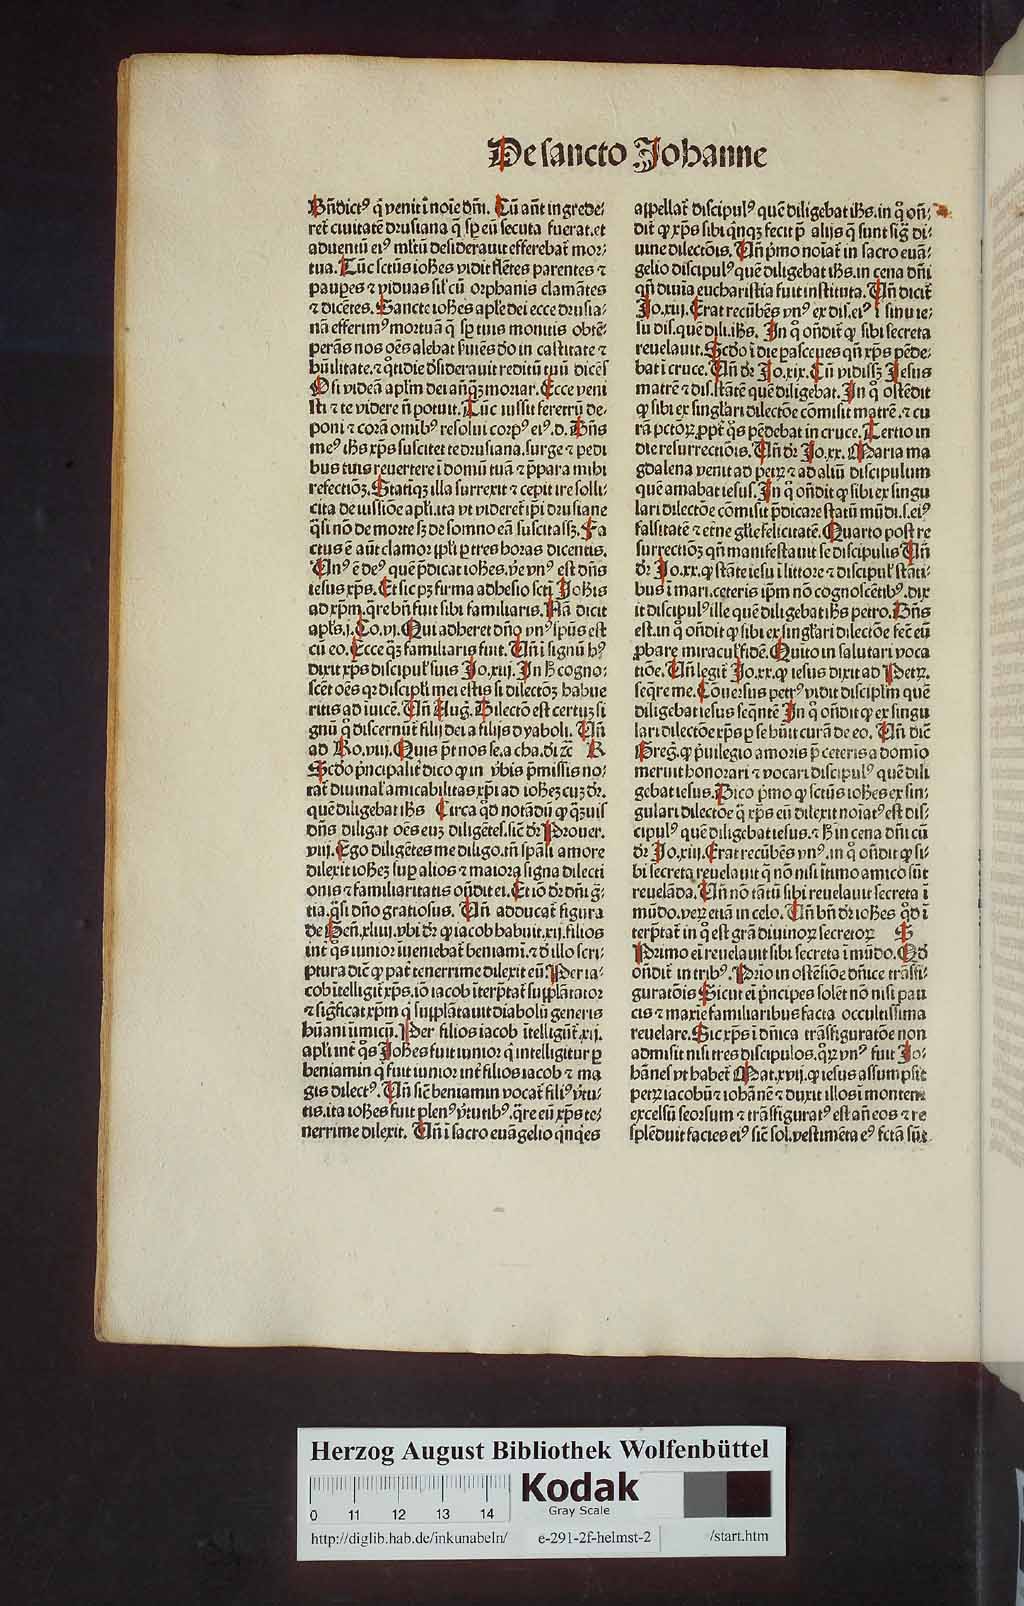 De sancto Johanne
Bñdictꝰ q̃ venit ĩ noĩe dñi. Cũ añt ingrede⸗
ret᷑ ciuitatẽ drusiana q̃ sꝑ eũ secuta fuerat.et
aduentũ eiꝰ ml̃tũ desiderauit efferebat᷑ mor⸗
tua. Tũc sctũs iohẽs vidit flẽtes parentes ⁊
pauꝑes ⁊ viduas sil᷑ cũ orphanis clamãtes
⁊ dicẽtes. Sancte iohẽs apl̃e dei ecce drusia⸗
nã efferimꝰ mortuã q̃ sꝑ tuis monitis obtẽ⸗
perãs nos oẽs alebat ẜuiẽs dõ in castitate ⁊
hũilitate.⁊ q̊tidie d̾siderauit reditũ tuũ dicẽs
O si videã apl̃m dei añq̃ꝫ moriar. Ecce veni
sti ⁊ te videre ñ potuit. Tũc iussit feretrũ de⸗
poni ⁊ corã omnibꝰ resolui corpꝰ eiꝰ.d. Dñs
meꝰ ihs xp̃s suscitet te drusiana.surge ⁊ pedi
bus tuis reuertere ĩ domũ tuã ⁊ p̃para mihi
refectiõꝫ. Statiqꝫ illa surrexit ⁊ cepit ire solli⸗
cita de iussiõe apl̃i.ita vt videret᷑ ip̃i drusiane
q̃si nõ de morte sꝫ de somno eã suscitassꝫ. Fa
ctus ẽ aũt clamor ppl̃i ꝑ tres horas dicentis.
Vnꝰ ẽ deꝰ quẽ p̃dicat iohẽs.ṽe vnꝰ est dñs
iesus xp̃s. Et sic pꝫ firma adhesio sctĩ Johis
ad xp̃m.q̃re bñ fuit sibi familiaris. Nã dicit
apl̃s.j. Co.vj. Qui adheret dño vnꝰ sp̃us est
cũ eo. Ecce q̃ꝫ familiaris fuit. Vñ ĩ signũ hꝰ
dixit xp̃s discipul᷑ suus Jo.xiij. In h̾ cogno⸗
scẽt oẽs qꝛ discipl̃i mei estis si dilectõꝫ habue
ritis ad iuicẽ. Vñ Aug̃. Dilectõ est certuꝫ si
gnũ q̊ discernunt᷑ filij dei a filijs dyaboli. Vñ
ad Ro.viij. Quis p̃t nos se.a cha.dĩ ⁊c̃ R
Scdõ p̃ncipalit᷑ dico ꝙ in v̾bis p̃missis no⸗
tat᷑ diuinal᷑ amicabilitas xp̃i ad iohẽꝫ cuꝫ dr̃.
quẽ diligebat ihs Circa qd̾ notãdũ ꝙ q̃ꝫuis
dñs diligat oẽs euꝫ diligẽtes.sic̃ dr̃ Prouer.
viij. Ego diligẽtes me diligo.tñ spãli amore
dilexit iohẽꝫ suꝑ alios ⁊ maiora signa dilecti
onis ⁊ familiaritatis oñdit ei. Et iõ dr̃ dñi g̃⸗
tia.q̃si dño gratiosus. Vñ adducat᷑ figura
de Geñ.xliiij.vbi dr̃ ꝙ iacob habuit.xij.filios
int᷑ q̊s iunior inueniebat᷑ beniamĩ.⁊ d̾ illo scri⸗
ptura dic̃ ꝙ pat᷑ tenerrime dilexit eũ. Per ia⸗
cob ĩtelligit᷑ xp̃s.iõ iacob ĩterp̃tat᷑ supplãtator
⁊ sig̃ficat xp̃m q̃ supplãtauit diabolũ generis
hũani inimicũ. Per filios iacob ĩtelligũt᷑.xij.
apl̃i int᷑ q̊s Johẽs fuit iunior q̃ intelligitur ꝑ
beniamin q̃ fuit iunior int᷑ filios iacob ⁊ ma
gis dilectꝰ. Vñ sic̃ beniamin vocat᷑ filiꝰ ṽtu⸗
tis.ita iohẽs fuit plenꝰ ṽtutibꝰ.q̃re eũ xp̃s te⸗
nerrime dilexit. Vñ ĩ sacro euãgelio q̃nq̃es
appellat᷑ discipulꝰ quẽ diligebat ihs.in q̊ oñ⸗
dit᷑ ꝙ xp̃s sibi q̃nqꝫ fecit p̃ alijs q̃ sunt sig̃ di⸗
uine dilectõis. Vñ p̃mo noĩat᷑ in sacro euã⸗
gelio discipulꝰ quẽ diligebat ihs.in cena dñi
qñ diuĩa eucharistia fuit instituta. Vñ dicit᷑
Jo.xiij. Erat recũbẽs vnꝰ ex dis.eiꝰ ĩ sinu ie⸗
su dis.quẽ dili.ihs. In q̊ oñdit᷑ ꝙ sibi secreta
reuelauit. Scdõ ĩ die pasceues qñ xp̃s pẽde⸗
bat ĩ cruce. Vñ dr̃ Jo.xix. Cũ vidissꝫ Jesus
matrẽ ⁊ dis.stãtẽ quẽ diligebat. In q̊ ostẽdit᷑
ꝙ sibi ex singl̃ari dilectõe cõmisit matrẽ.⁊ cu
rã pctõꝝ.ꝓpt᷑ q̊s pẽdebat in cruce. Tertio in
die resurrectiõis. Vñ dr̃ Jo.xx. Maria ma
gdalena venit ad petꝝ ⁊ ad aliũ discipulum
quẽ amabat iesus. In q̊ oñdit᷑ ꝙ sibi ex singu
lari dilectõe cõmisit p̃dicare statũ mũdi.s.eiꝰ
fallitatẽ ⁊ etñe gl̃ie felicitatẽ. Quarto post re
surrectiõꝫ qñ manifestauit se discipulis Vñ
dr̃ Jo.xx.ꝙ stãte iesu ĩ littore ⁊ discipul᷑ stãti⸗
bus ĩ mari.ceteris ip̃m nõ cognoscẽtibꝰ.dix
it discipulꝰ ille quẽ diligebat ihs petro. Dñs
est.in q̊ oñdit᷑ ꝙ sibi ex singl̃ari dilectõe fec̃ eũ
ꝓbare miracul᷑ fidẽ. Quito in salutari voca
tiõe. Vñ legit᷑ Jo.xx.ꝙ iesus dixit ad Petꝝ.
seq̃re me. Cõuersus petrꝰ vidit discipl̃m quẽ
diligebat iesus seq̃ntẽ In q̊ oñdit᷑ ꝙ ex singu
lari dilectõe xp̃s ꝑ se hũit curã de eo. Vñ dic̃
Greg̃.ꝙ p̃uilegio amoris p̃ ceteris a domĩo
meruit honorari ⁊ vocari discipulꝰ quẽ dili
gebat iesus. Dico p̃mo ꝙ sctũs iohẽs ex sin⸗
gulari dilectõe q̃ xp̃s eũ dilexit noĩatꝰ est dis⸗
cipulꝰ quẽ diligebat iesus.⁊ h̾ in cena dñi cũ
dr̃ Jo.xiij. Erat recũbẽs vnꝰ.in q̊ oñdit᷑ ꝙ si⸗
bi secreta reuelauit q̃ nõ nisi ĩtimo amico sũt
reuelãda. Vñ nõ tãtũ sibi reuelauit secreta ĩ
mũdo.veꝝ etiã in celo. Vñ bñ dr̃ iohẽs qd̾ ĩ
terp̃tat᷑ in q̊ est grã diuinoꝝ secretoꝝ S
Primo eĩ reuelauit sibi secreta ĩ mũdo. Qd̾
oñdit᷑ in tribꝰ. Prĩo in ostẽsiõe dñice trãsfi⸗
guratõis Sicut eĩ p̃ncipes solẽt nõ nisi pau
cis ⁊ maxie familiaribus facta occultissima
reuelare. Sic xp̃s ĩ dñica trãsfiguratõe non
admisit nisi tres discipulos.q̊ꝝ vnꝰ fuit Jo⸗
hãnes vt habet᷑ Mat.xvij.ꝙ iesus assumpsit
petꝝ iacobũ ⁊ iohãnẽ ⁊ duxit illos ĩ montem
excelsũ seorsum ⁊ trãsfiguratꝰ est añ eos ⁊ re
splẽduit facies eiꝰ sic̃ sol.vestimẽta eꝰ fctã sũt
Herzog August Bibliothek Wolfenbüttel
Kodak
Gray Scale
0 11 12 13 14
http://diglib.hab.de/inkunabeln/ e-291-2f-helmst-2 /start.htm